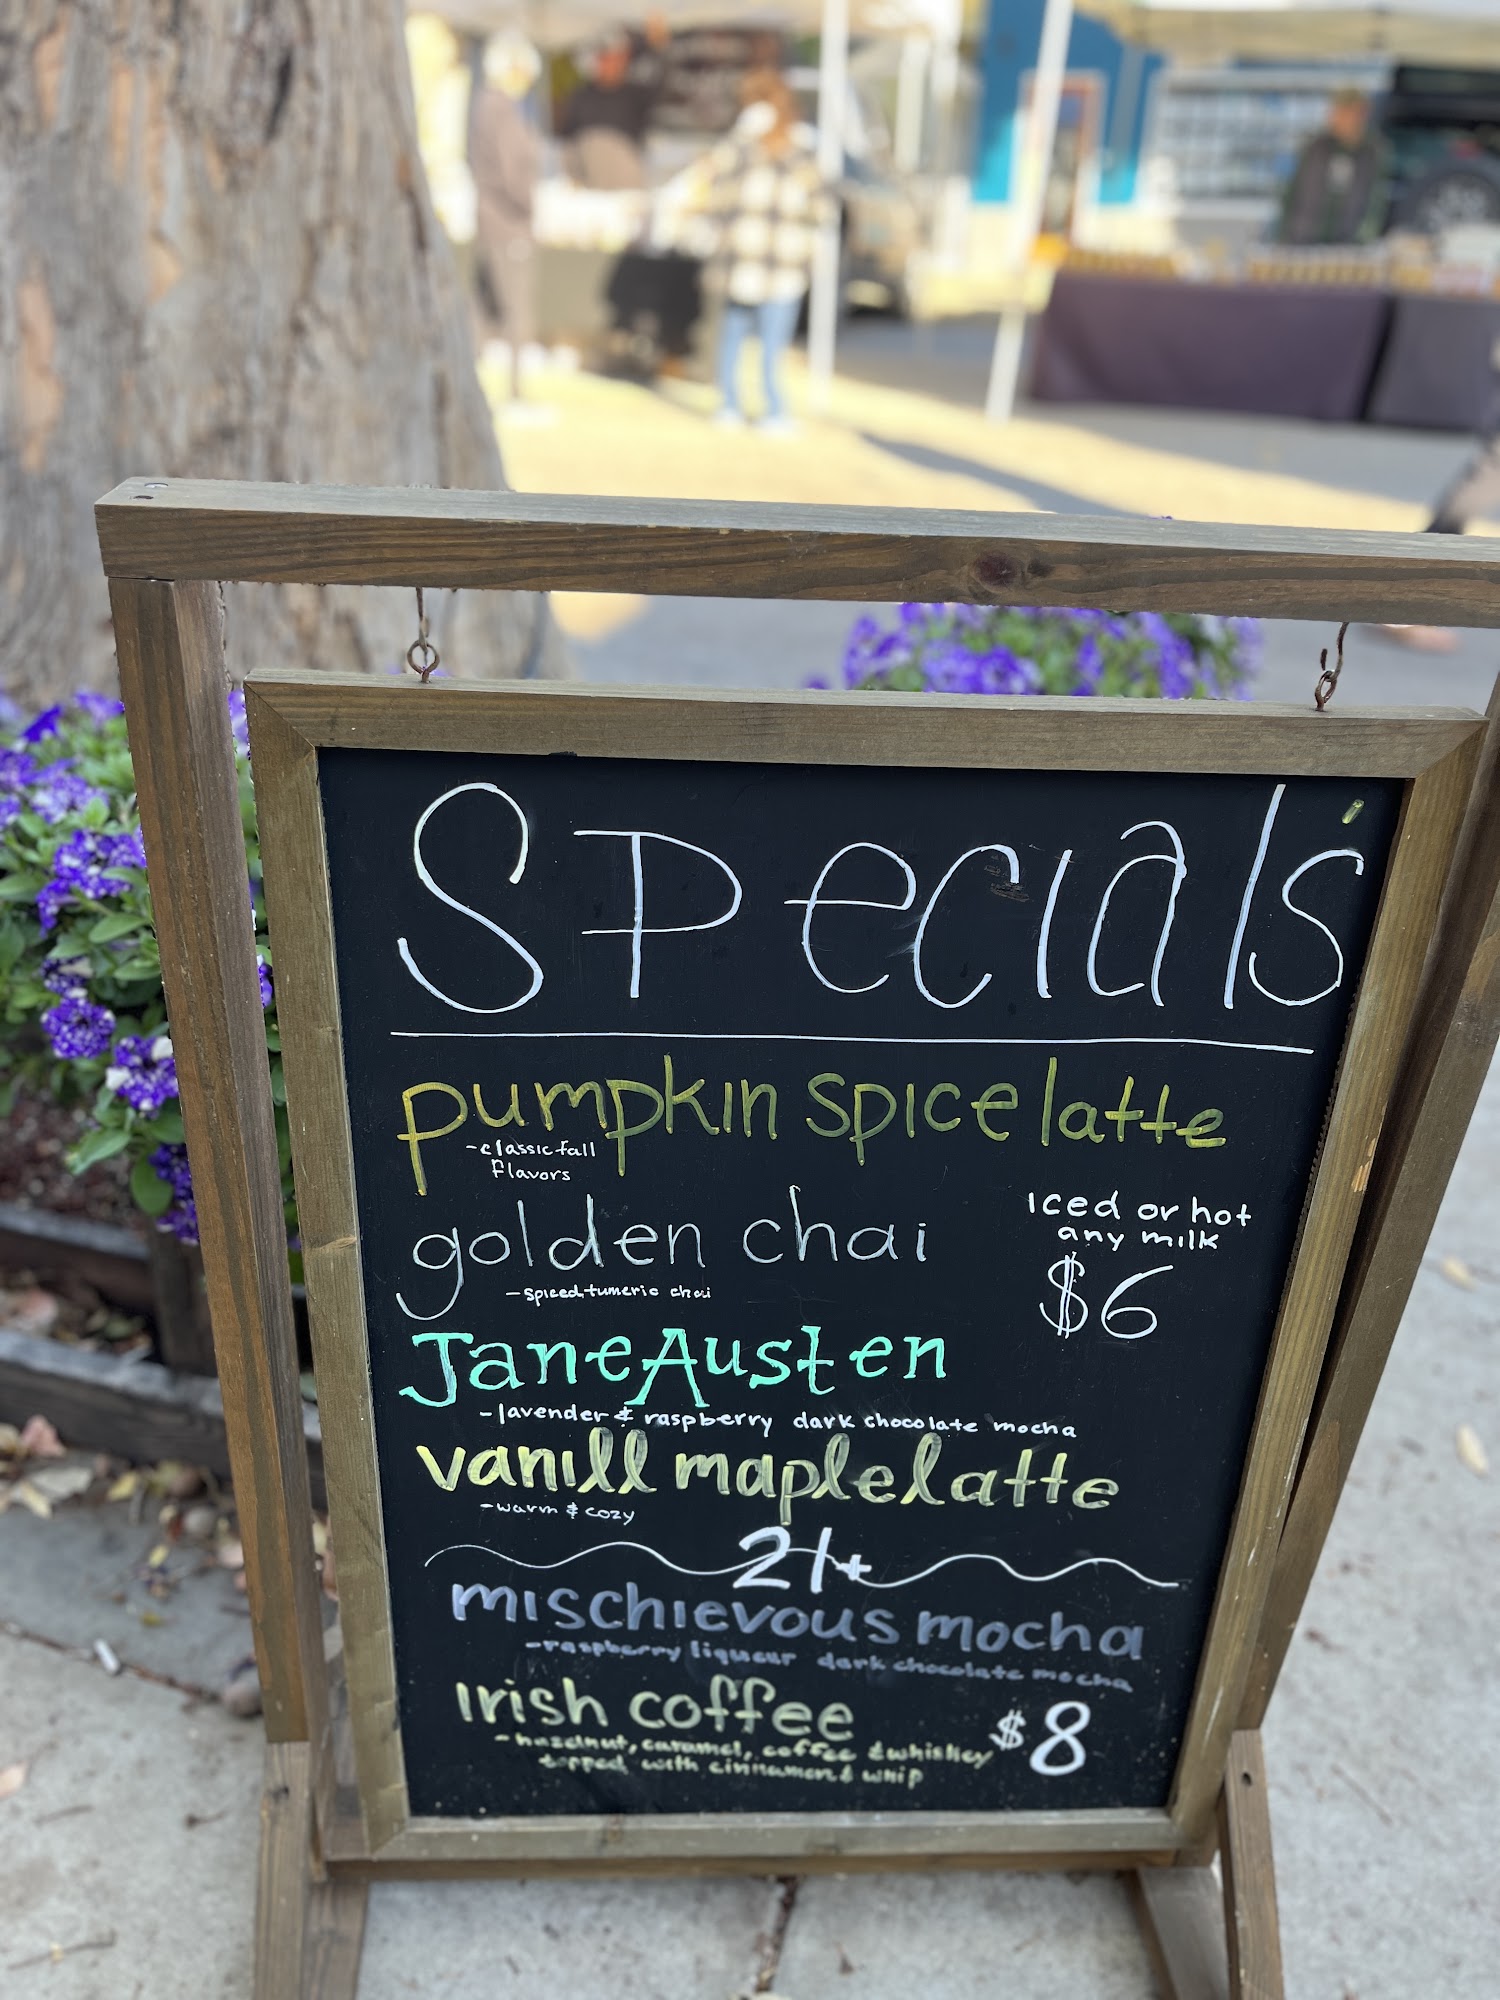 Specials
pumpkin spice latte
-classic fall
flavors
golden chai
-spiced tumeric chai
iced or hot
any milk
$6
Jane Austen
-lavender & raspberry dark chocolate mocha
vanill maple latte
-warm & cozy
21+
mischievous mocha
-raspberry liqueur dark chocolate mocha
irish coffee
-hazelnut, caramel, coffee & whiskey
topped with cinnamon & whip
$8